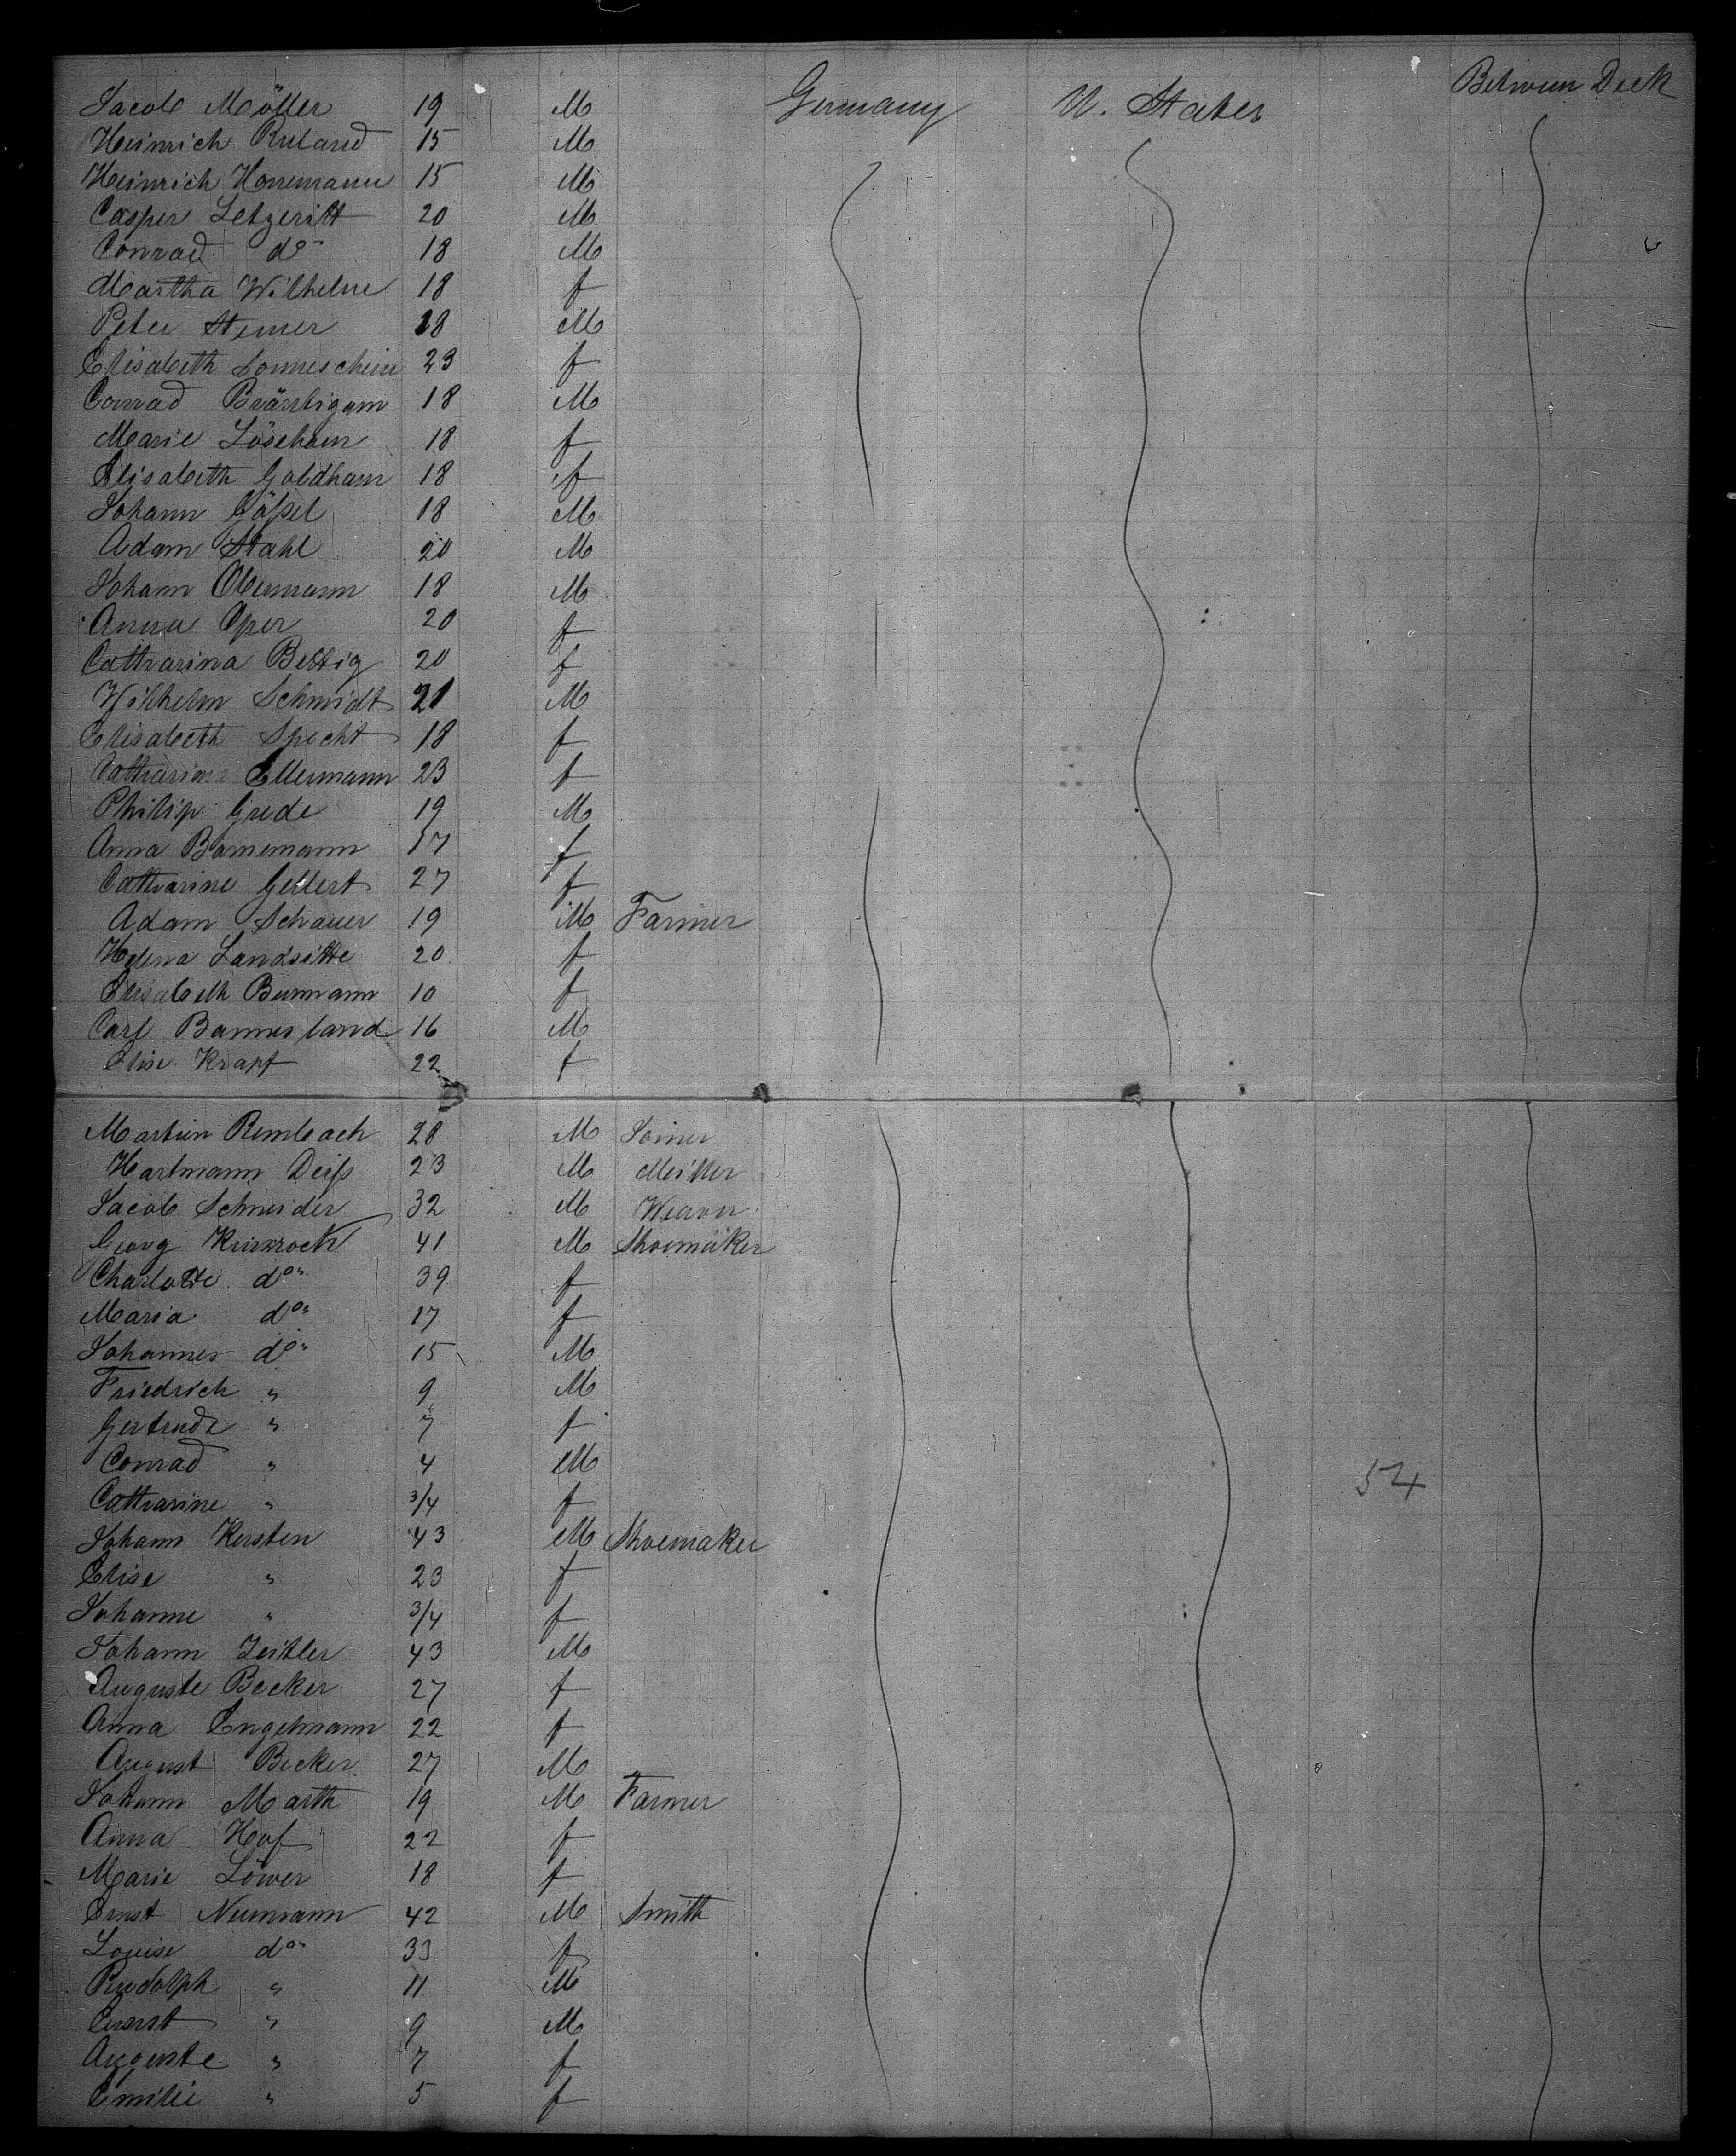 Jacob Möller 19 M Germany U. States Between Deck
Heinrich Ruland 15 M
Heinrich Hornemann 15 M
Casper Letzeritt 20 M
Conrad do 18 M
Martha Wilhelm 18 f
Peter Steiner 18 M
Elisabeth Sonneschein 23 f
Conrad Bräutigam 18 M
Marie Löscham 18 f
Elisabeth Goldham 18 f
Johann Gößel 18 M
Adam Stahl 20 M
Johann Obermann 18 M
Anna Oper 20 f
Catharina Bettig 20 f
Wilhelm Schmidt 21 M
Elisabeth Specht 18 f
Catharine Ellermann 23 f
Philip Grede 19 M
Anna Bornemann 17 f
Catharine Gellert 27 f
Adam Schauer 19 M Farmer
Helena Landsitte 20 f
Elisabeth Burmann 10 f
Carl Bannesland 16 M
Elise Krapf 22 f
Martin Rembach 28 M Joiner
Hartmann Deiß 23 M Meiller
Jacob Schneider 32 M Weaver
Georg Kurzrock 41 M Shoemaker
Charlotte do 39 f
Maria do 17 f
Johannes do 15 M
Friedrich " 9 M
Gertrude " 7 f
Conrad " 4 M 54
Catharine " 3/4 f
Johann Kersten 43 M Shoemaker
Elise " 23 f
Johanne " 3/4 f
Johann Zeitler 43 M
Auguste Becker 27 f
Anna Engelmann 22 f
August Becker 27 M
Johann Marth 19 M Farmer
Anna Hof 22 f
Marie Löwer 18 f
Ernst Neumann 42 M Smith
Louise do 33 f
Rudolph " 11 M
Ernst " 9 M
Auguste " 7 f
Emilie " 5 f